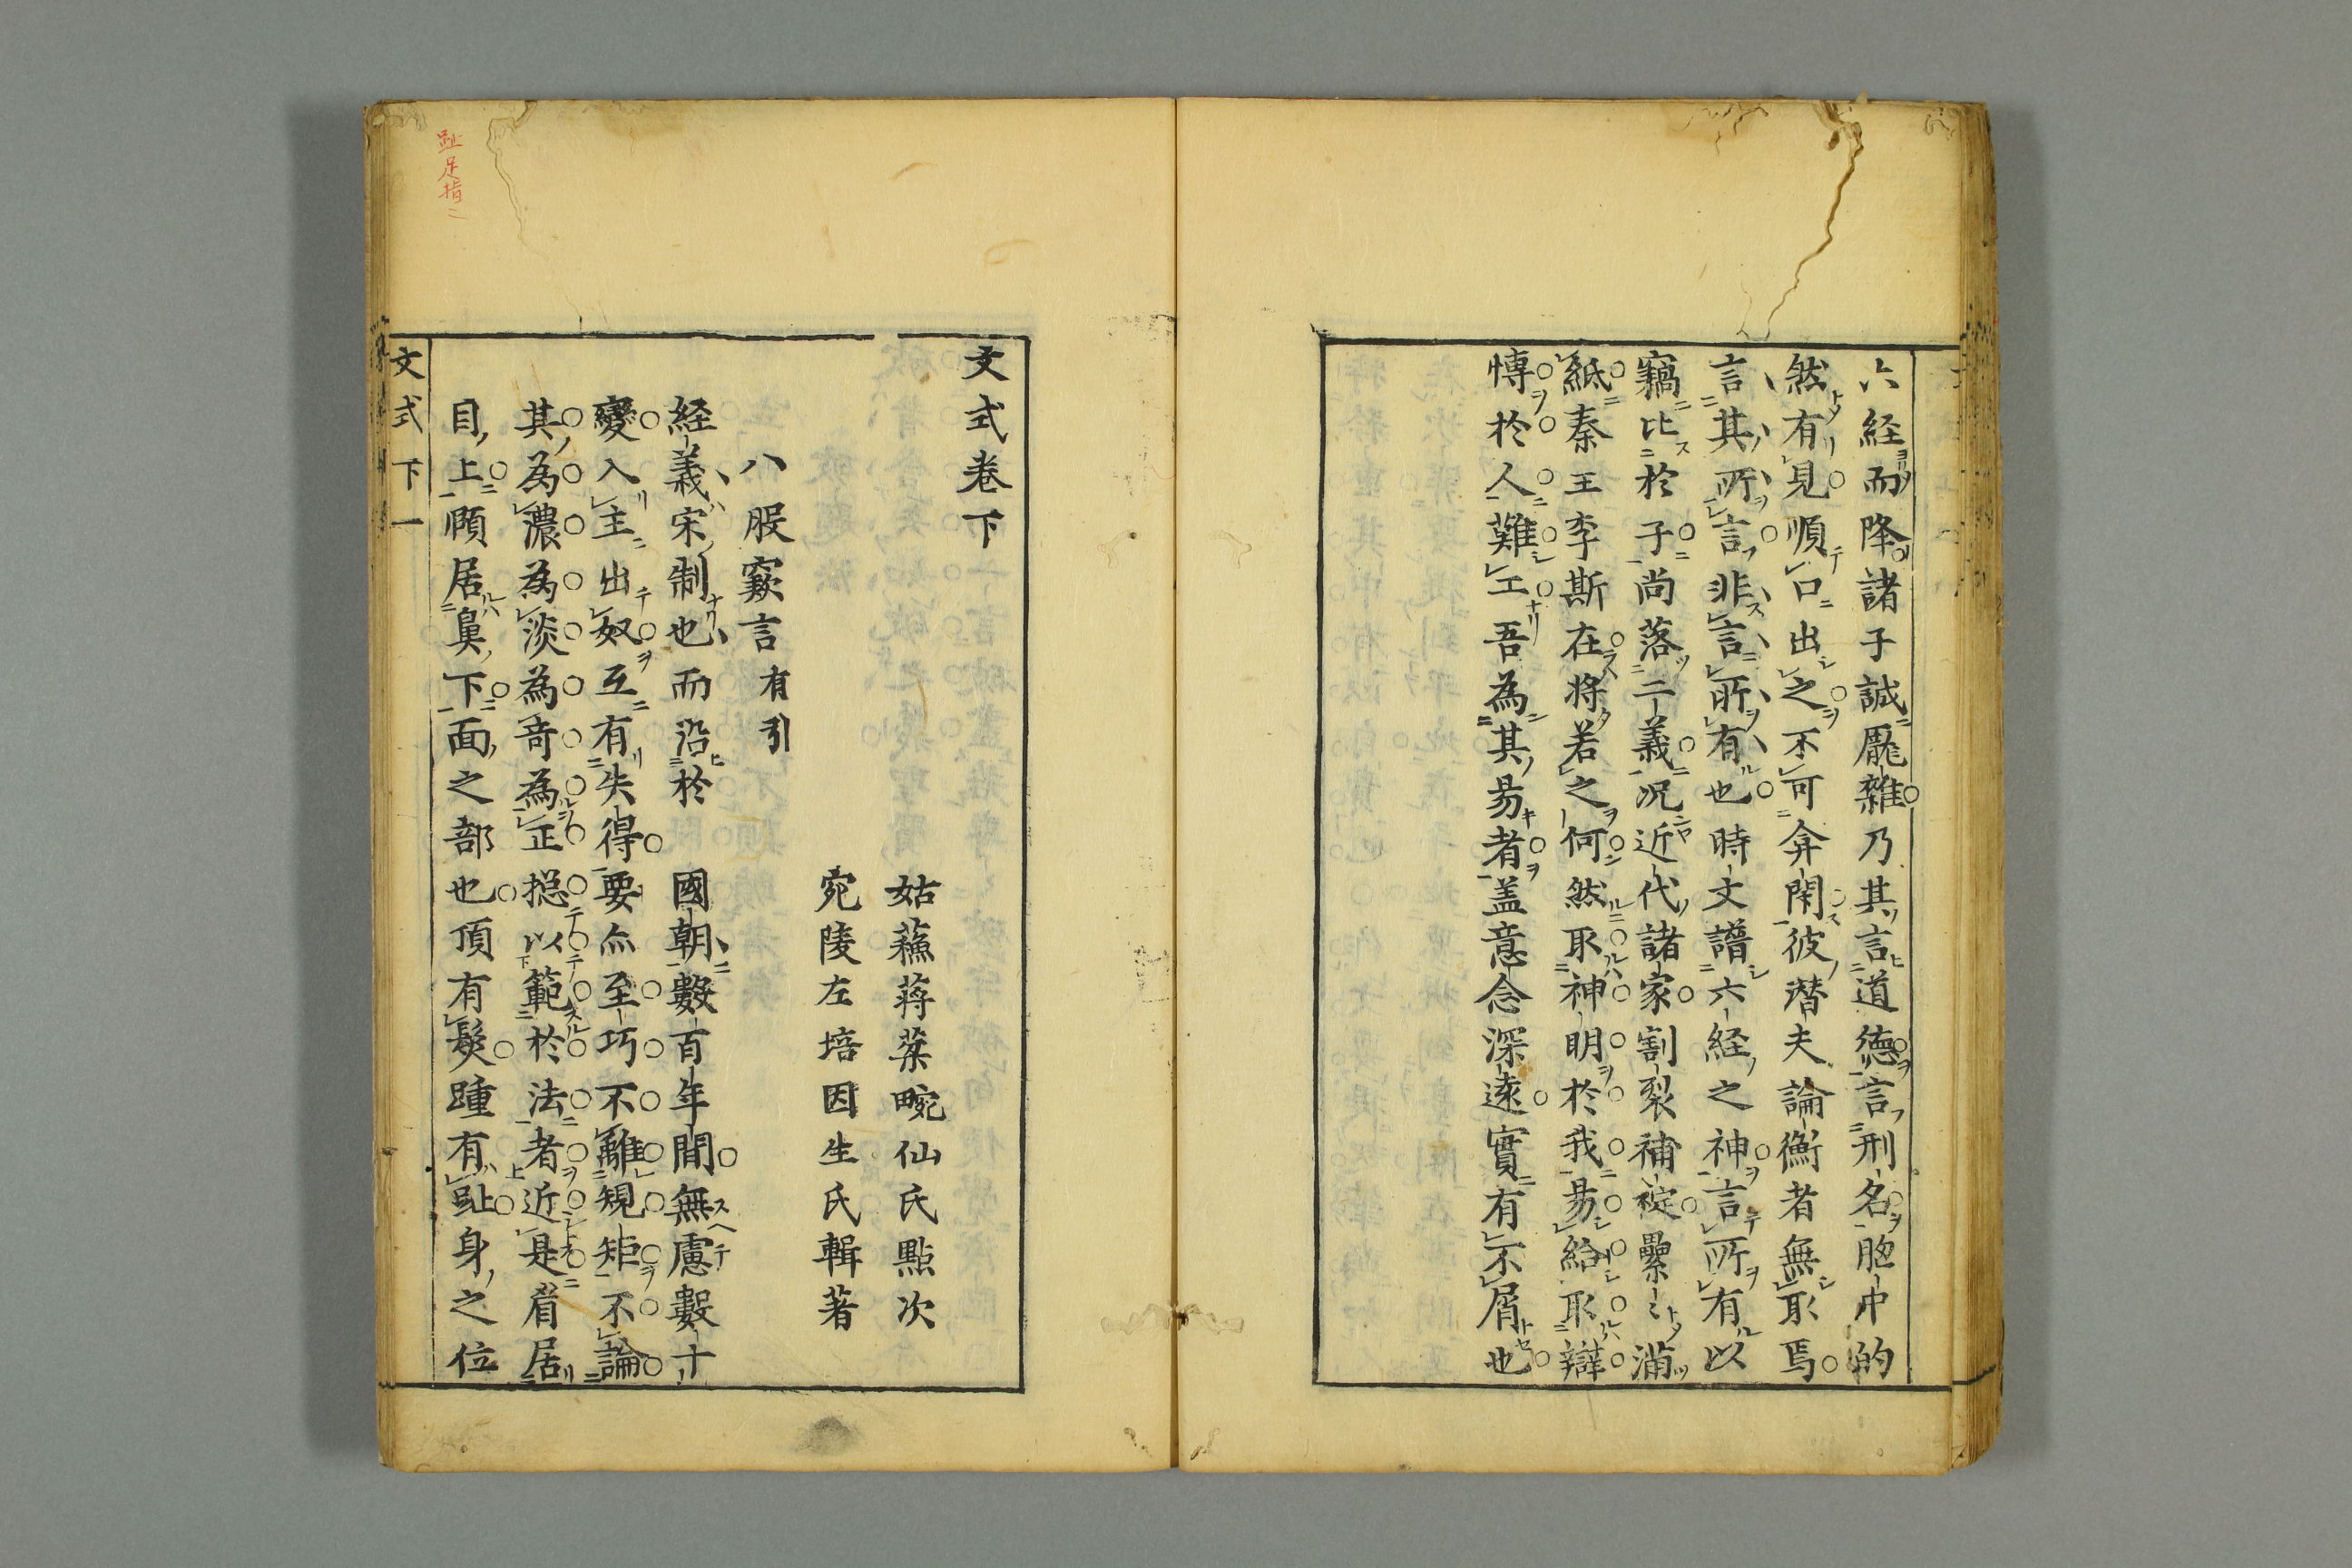 六経而降諸子誠厖雜乃其言道徳言刑名胞中的
然有見順口出之不可弇閑彼潜夫論衡者無取焉
言其所言非言所有也時文譜六経之神言所有以
竊比於子尚落二義况近代諸家割裂補綻纍〻滿
紙秦王李斯在将若之何然取神明於我昜給取辯
慱於人難工吾為其昜者盖意念深遠實有不屑也
文式巻下
姑蘓蒋棻畹仙氏點次
宛陵左培因生氏輯著
八股窾言有引
経義宋制也而沿於國朝數百年間無慮數十
變入主出奴互有失得要亦至巧不離規矩不論
其為濃為淡為竒為正揔以範於法者近是眉居
目上頤居鼻下面之部也頂有髮踵有趾身之位
文式下一
趾足指ニ